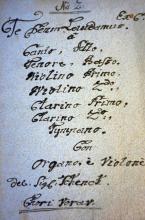 No 2
Te Deum Laudamus.
a
Canto, Alto,
Tenore, Basso.
Violino Primo.
Violino 2do.
Clarino Primo,
Clarino 2do,
Tympano.
Con
Organo, è Violone
del Sigl. Schenck.